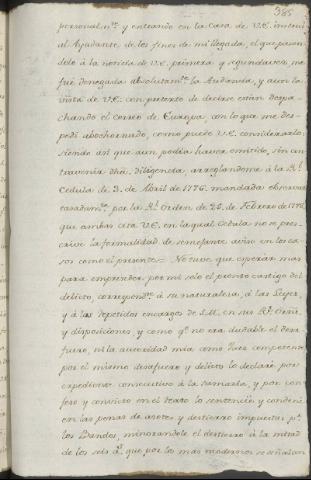 385
personalmte. y entrando en la Casa de V.E. intimé
al Ayudante de los fines de mi llegada, el que pasan-
dolo á la noticia de V.E. primera y segunda vez, me
fué denegada absolutamte. la Audiencia, y aun la
vista de V.E. con pretexto de decirse estár despa-
chando el correo de Europa, con lo que me des-
pedí abochornado, como puede V.E. considerarlo;
siendo así que aun podía haver omitido, sin con-
travenir dha. diligencia, arreglandome á la Rl.
Cedula de 3. de Abril de 1776. mandada observar
por la Rl. Orden de 28. de Febrero de
que ambas cita V.E. en la qual Cedula no se pres-
crive la formalidad de semejante aviso en los ca-
sos como el presente. No tuve que esperar mas
para emprender por mi solo el pronto castigo del
delicto, correspondte. á su naturaleza, á las Leyes,
y á los repetidos encargos de S.M. en sus Rs. Orns.
y disposiciones, y como qe. no era dudable el desa-
fuero, ni la autoridad mia como Juez competente
por el mismo desafuero y delito lo declaré por
expediente consecutivo á la sumaria, y por con-
feso y convicto en el texto lo sentencié y condené
en las penas de azotes y destierro impuestas pr.
los Bandos, minorandole el destierro á la mitad
de los seis as. que por los mas modernos se señalan